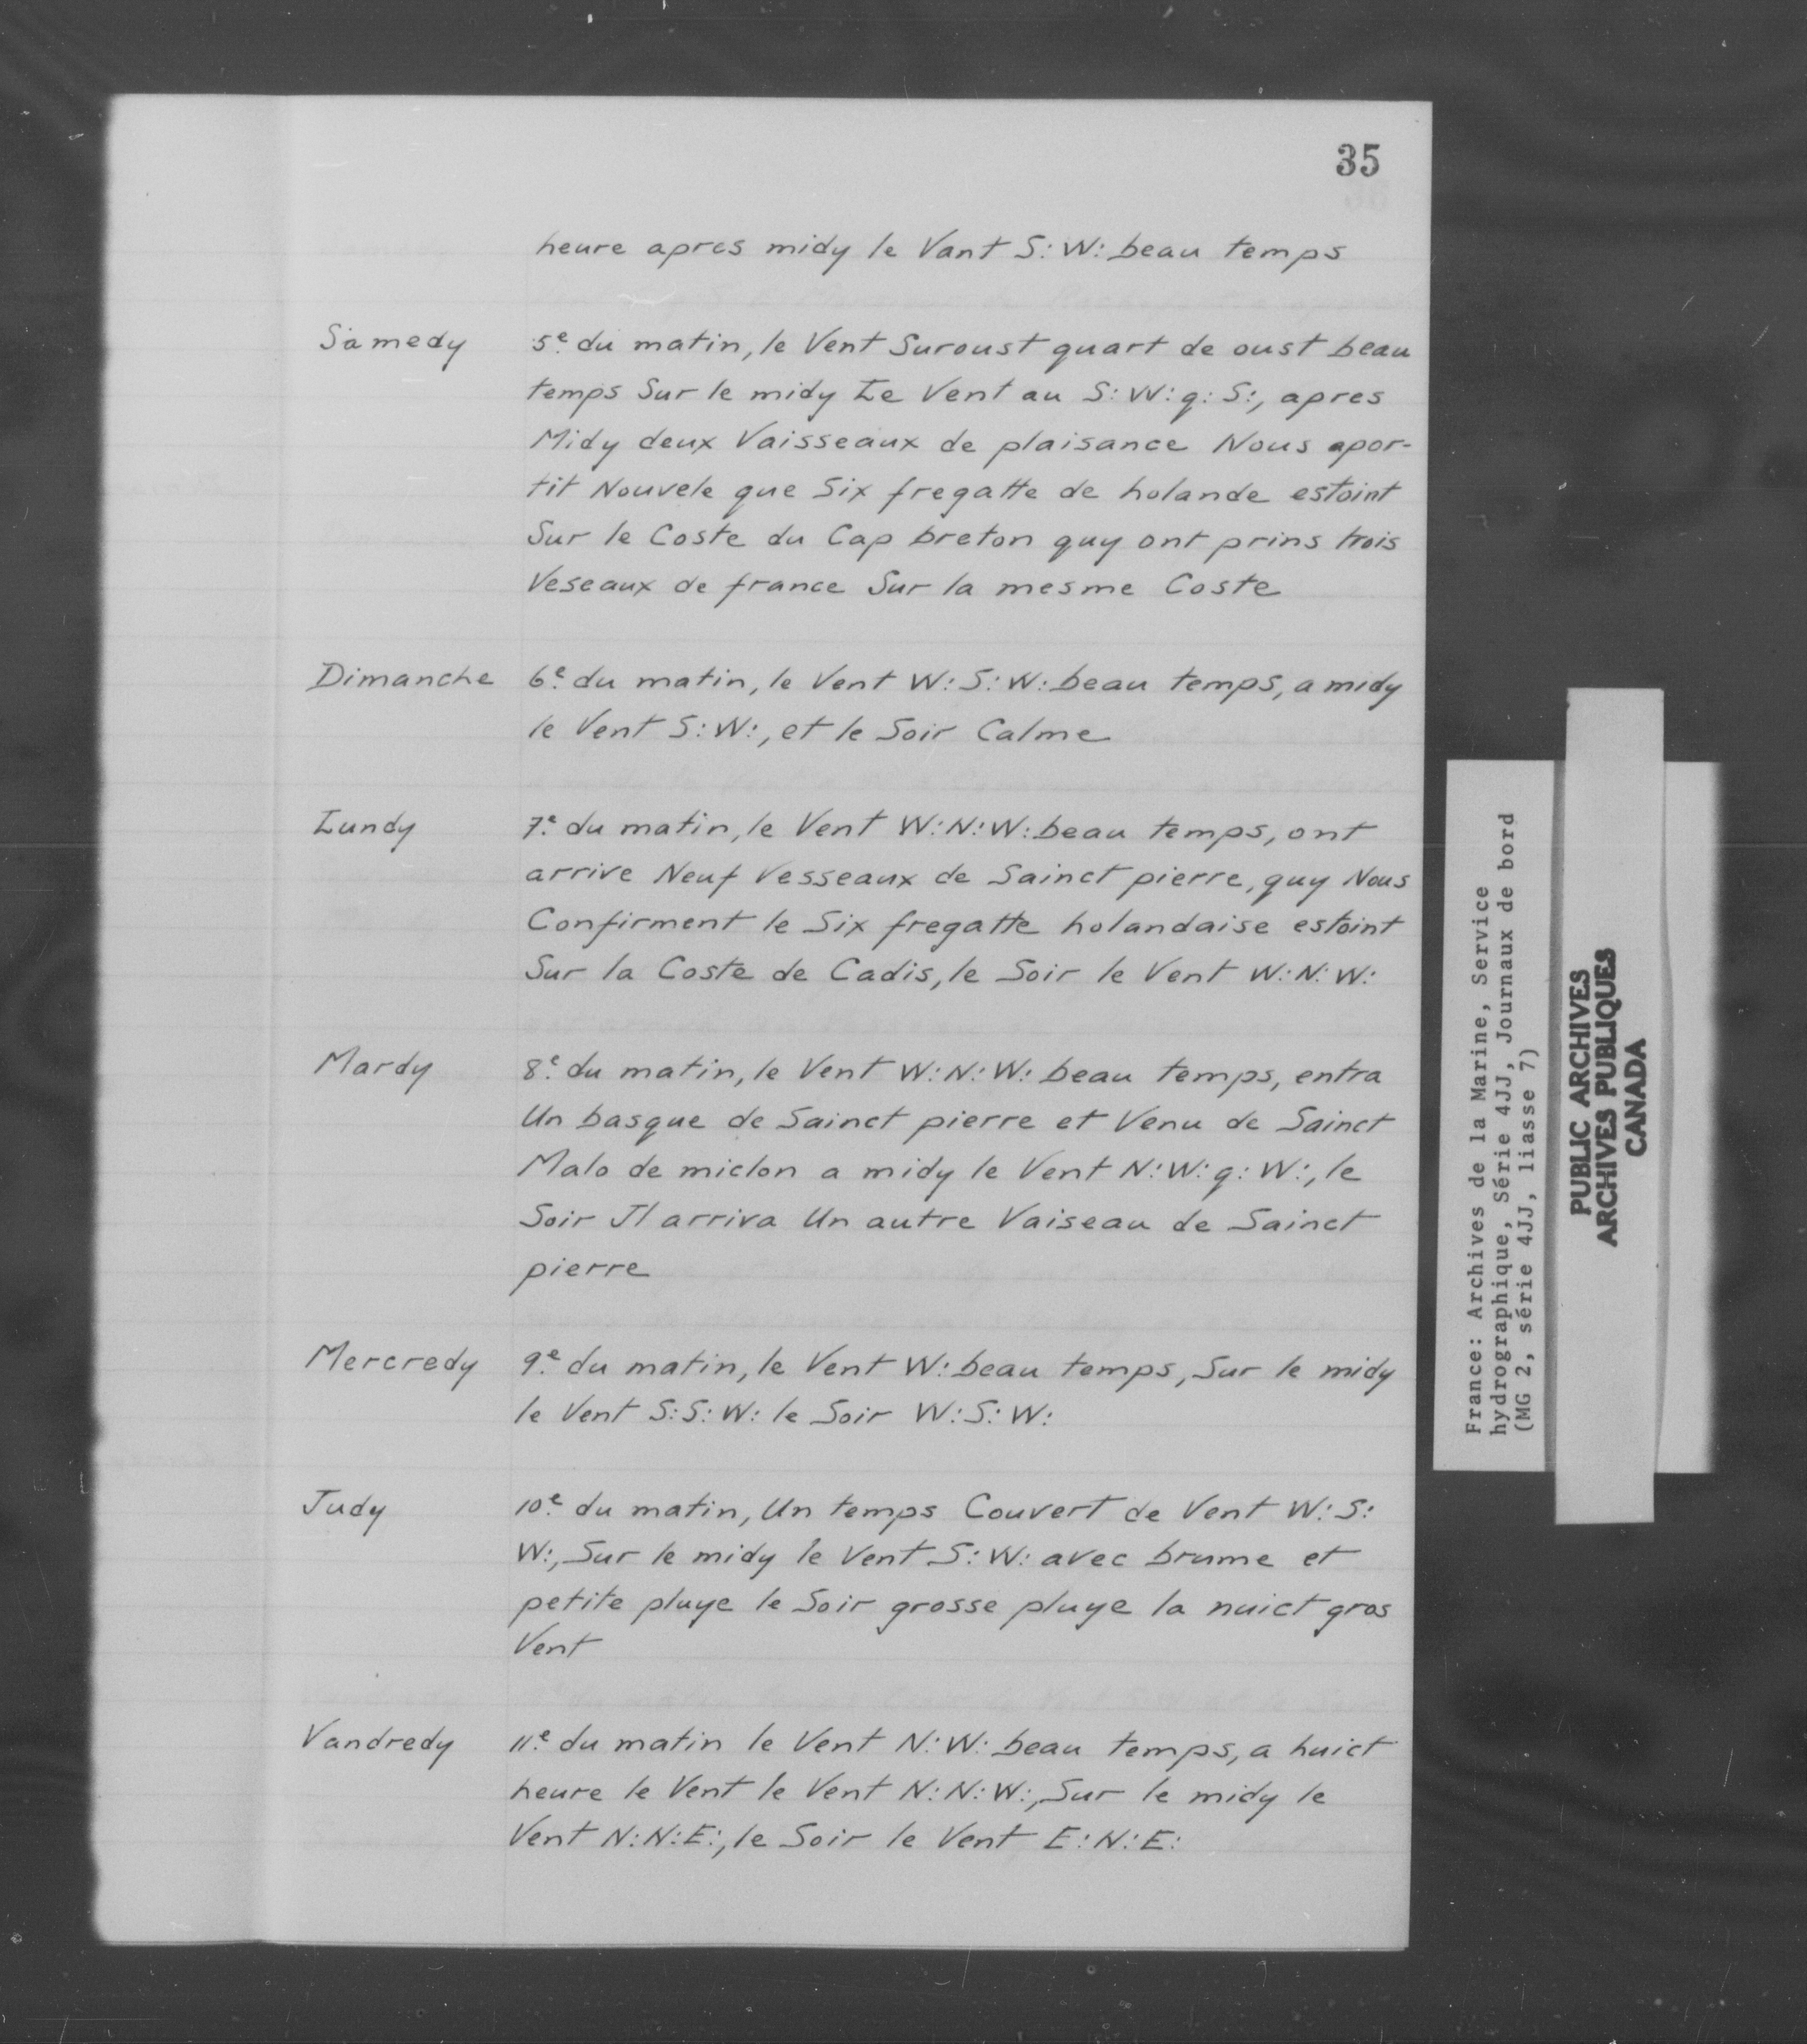 35
heure apres midy le Vant S: W: beau temps
Samedy 5e. du matin, le Vent Suroust quart de oust beau
temps Sur le midy Le Vent au S: W: q: S:, apres
Midy deux Vaisseaux de plaisance Nous apor-
tit Nouvele que Six fregatte de holande estoint
Sur le Coste du Cap breton quy ont prins trois
Veseaux de france Sur la mesme Coste
Dimanche 6e. du matin, le Vent W: S: W: beau temps, a midy
le Vent S: W:, et le Soir Calme
Lundy 7e. du matin, le Vent W: N: W: beau temps, ont
arrive Neuf Vesseaux de Sainct pierre, quy Nous
Confirment le Six fregatte holandaise estoint
Sur la Coste de Cadis, le Soir le Vent W: N: W:
Mardy 8e. du matin, le Vent W: N: W: beau temps, entra
Un basque de Sainct pierre et Venu de Sainct
Malo de miclon a midy le Vent N: W: q: W:, le
Soir Jl arriva Un autre Vaiseau de Sainct
pierre
Mercredy 9e. du matin, le Vent W: beau temps, Sur le midy
le Vent S: S: W: le Soir W: S: W:
Judy 10e. du matin, Un temps Couvert de Vent W: S:
W:, Sur le midy le Vent S: W: avec brume et
petite pluye le Soir grosse pluye la nuict gros
Vent
Vandredy 11e. du matin le Vent N: W: beau temps, a huict
heure le Vent le Vent N: N: W:, Sur le midy le
Vent N: N: E:, le Soir le Vent E: N: E:
France: Archives de la Marine, Service
hydrographique, Série 4JJ, Journaux de bord
(MG 2, série 4JJ, liasse 7)
PUBLIC ARCHIVES
ARCHIVES PUBLIQUES
CANADA